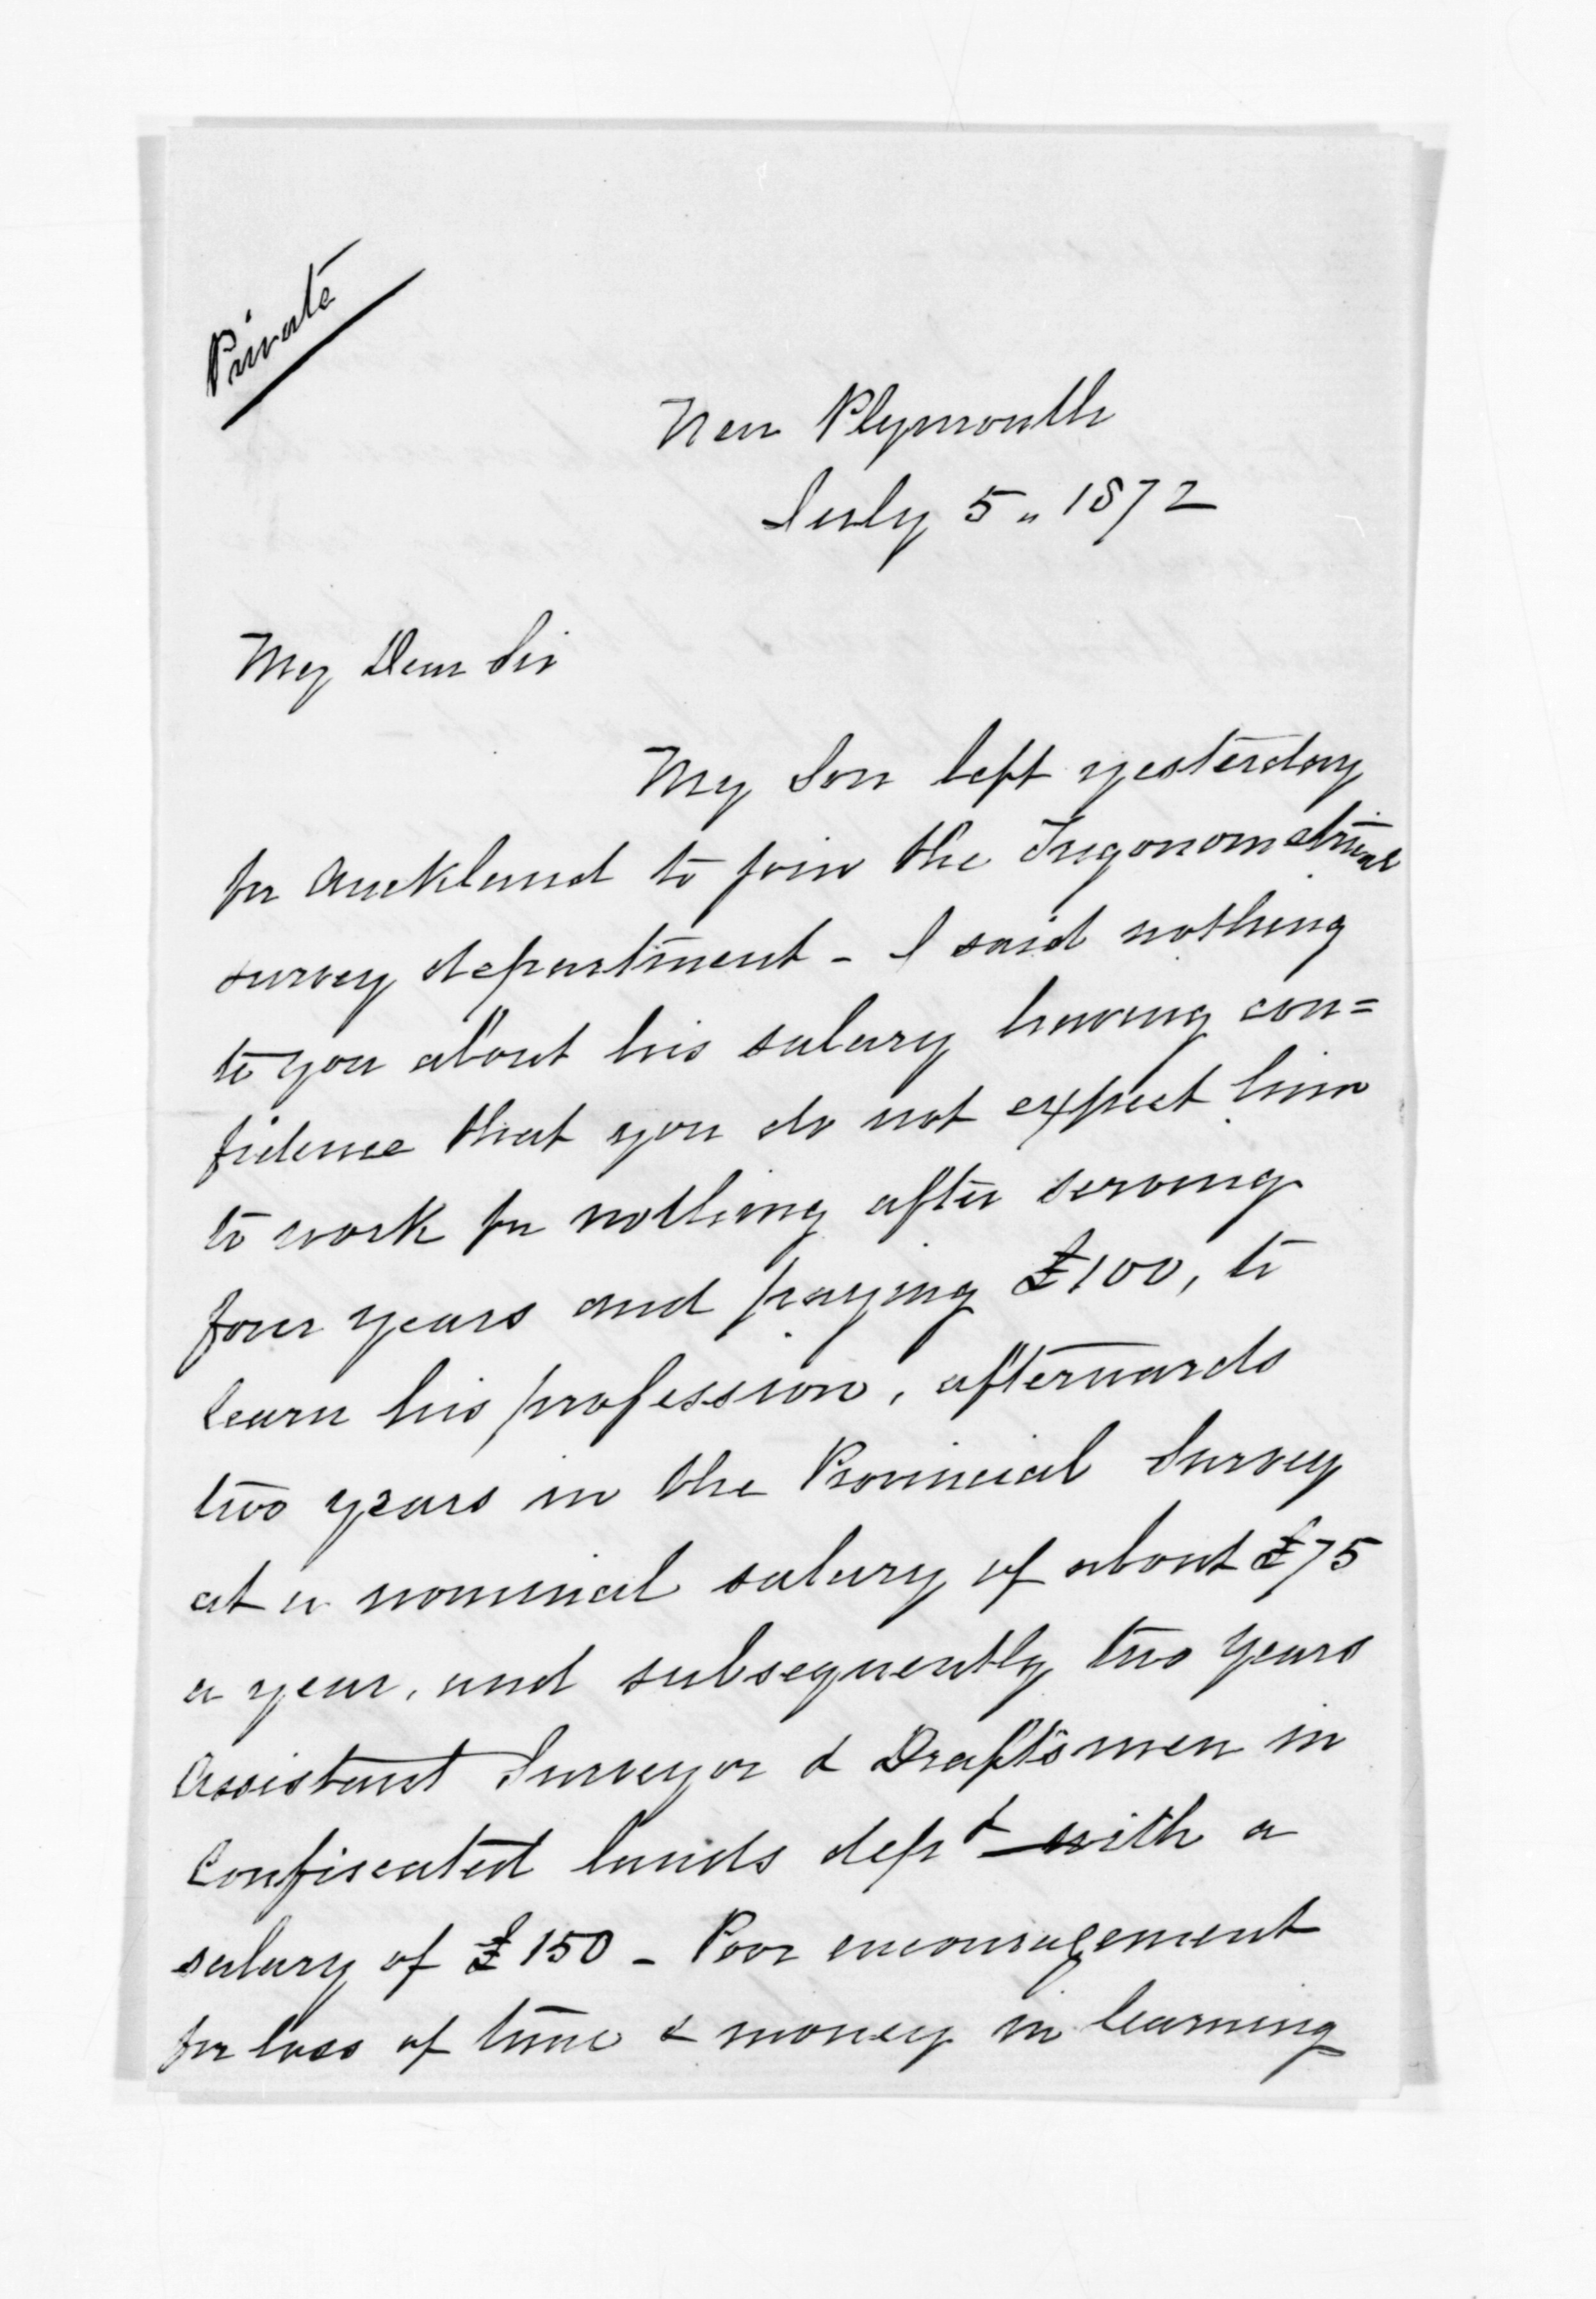 Private
New Plymouth
July 5" 1872
My Dear Sir
My Son left yesterday
for Auckland to join the Trigonometrical
survey department - I said nothing
to you about his salary having con=
fidence that you do not expect him
to work for nothing after serving
four years and paying £100, to
learn his profession, afterwards
two years in the Provincial Survey
at a nominal salary of about £75
a year, and subsequently two years
Assistant Surveyor & Draftsmen in
Confiscated lands dept with a
salary of £150 - Poor encouragement
for loss of time & money in learning